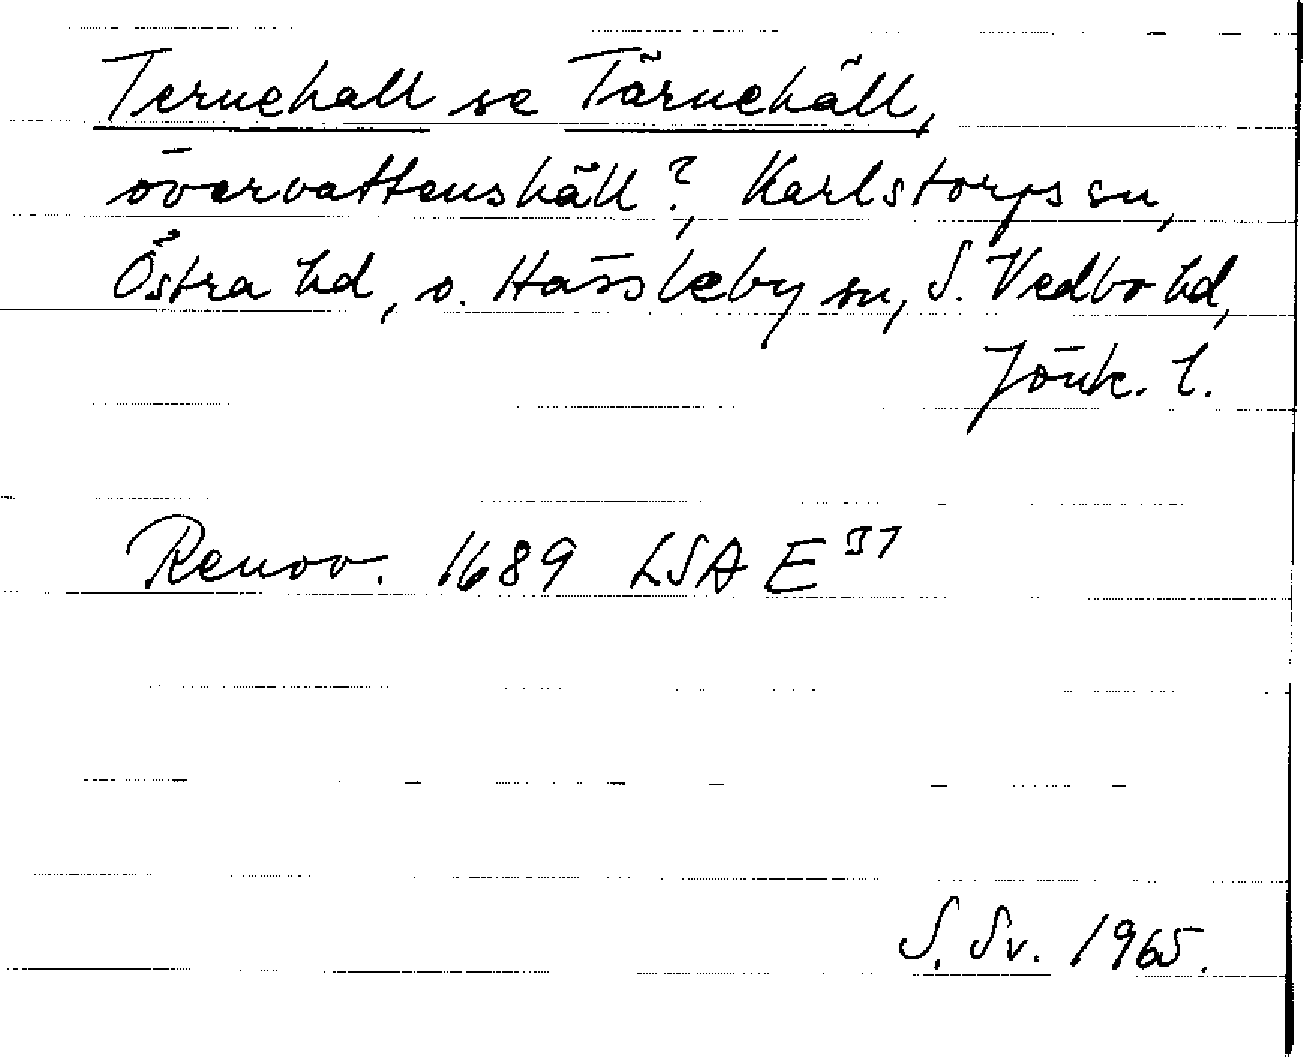 Ternehall se Tärnehäll,
övervattenshäll?, Karlstorps sn,
Östra hd, o. Hässleby sn, S. Vedbo hd,
Jönk. l.
Renov. 1689 LSA E
S. Sv. 1965.